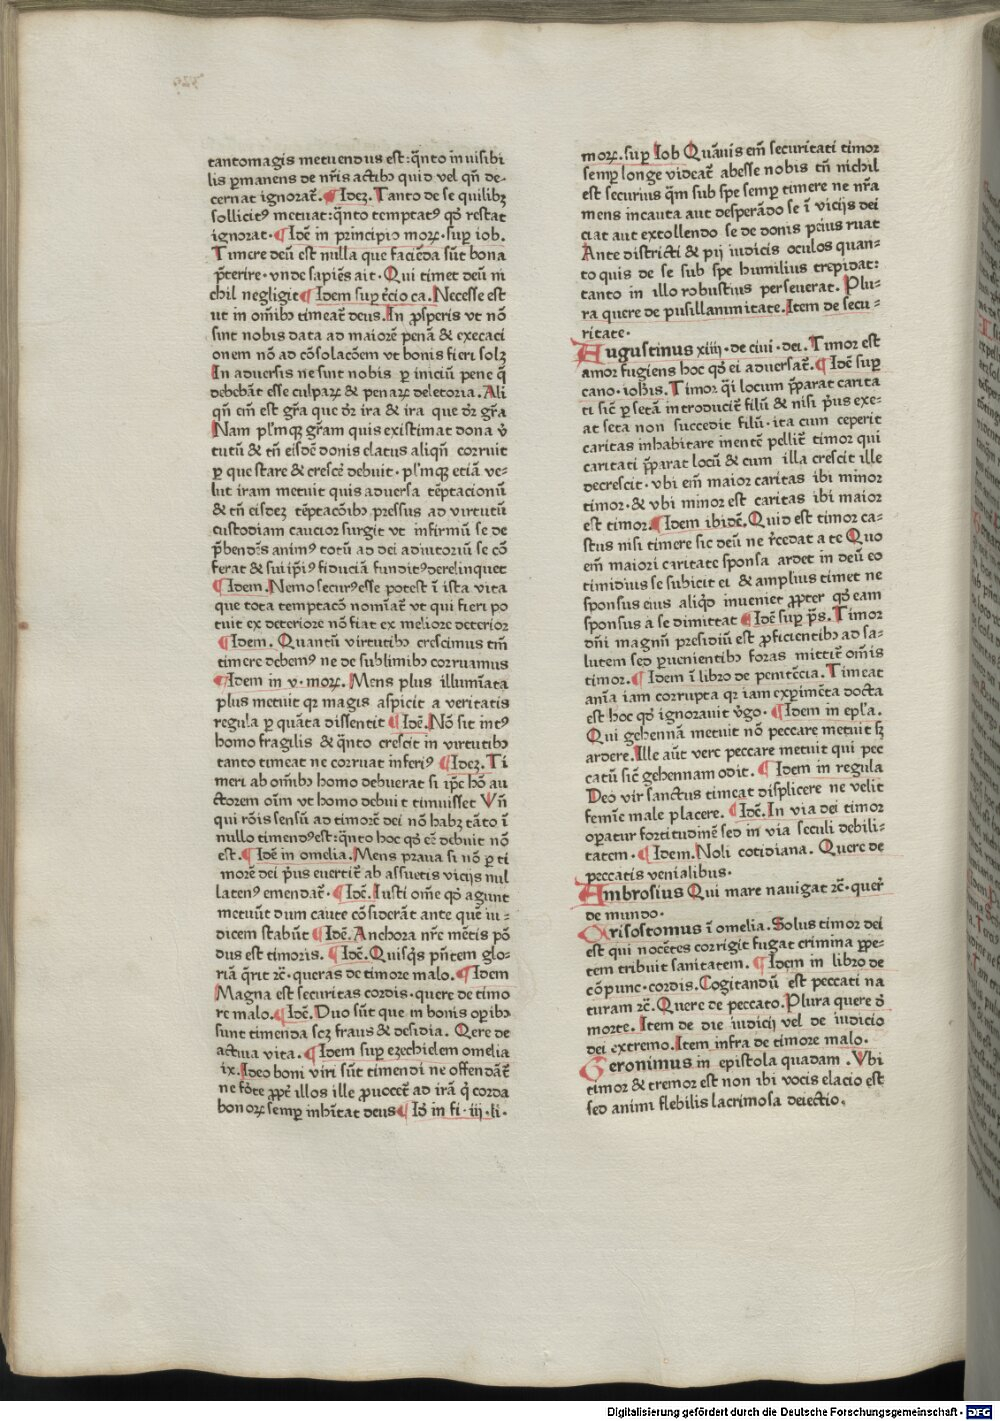 tantomagis metuendus est: q̃nto inuisibi
lis ꝑmanens de nr̃is actibꝫ quid vel qñ de-
cernat ignorat̃. ¶ Idez. Tanto de se quilibꝫ
sollicitꝰ metuat: q̃nto temptatꝰ qđ restat
ignorat. ¶ Idẽ in principio moꝝ. suꝑ iob.
Timere deũ est nulla que faciẽda sũt bona
p̃terire. vnde sapiẽs ait. Qui timet deũ ni
chil negligit ¶ Idem suꝑ t̃cio ca. Necesse est
ut in om̃ibꝫ timeat̃ deus. In ꝓsperis vt nõ
sint nobis data ad maiorẽ penã & execaci
onem nõ ad cõsolacõem vt bonis fieri solꝫ
In aduersis ne sint nobis ꝑ iniciũ pene q̃
debebãt esse culpaꝝ & penaꝝ deletoria. Ali
qñ em̃ est gr̃a que dr̃ ira & ira que dr̃ gr̃a
Nam pl̃mqꝫ gr̃am quis existimat dona v̾
tutũ & tñ eisdẽ donis elatus aliqñ corruit
ꝑ que stare & cresce̾ debuit. pl̃mqꝫ etiã ve-
lut iram metuit quis aduersa tẽptacionũ
& tñ eisdeꝫ tẽptacõibꝫ pressus ad virtutũ
custodiam caucior surgit vt infirmũ se de
p̃hendẽs animꝰ totũ ad dei adiutoriũ se cõ
ferat & sui ip̃iꝰ fiduciã funditꝰ derelinquet
¶ Idem. Nemo securꝰ esse potest ĩ ista vita
que tota temptacõ nomĩat̃ vt qui fieri po
tuit ex deteriore nõ fiat ex meliore deterior
¶ Idem. Quantũ virtutibꝫ crescimus tm̃
timere debemꝰ ne de sublimibꝫ corruamus
¶ Idem in v. moꝝ. Mens plus illumĩata
plus metuit qꝛ magis aspicit a veritatis
regula ꝑ quãta dissentit ¶ Idẽ. Nõ sit intꝰ
homo fragilis & q̃nto crescit in virtutibꝫ
tanto timeat ne corruat inferiꝰ ¶ Idez. Ti
meri ab om̃ibꝫ homo debuerat si ip̃e hõ au
ctorem oĩm vt homo debuit timuisset Vñ
qui rõis sensũ ad timorẽ dei nõ habꝫ tãto ĩ
nullo timendꝰ est: q̃nto hoc qđ eẽ debuit nõ
est. ¶ Idẽ in omelia. Mens praua si nõ ꝑ ti
morẽ dei p̾us euertit̃ ab assuetis vicijs nul
latenꝰ emendat̃. ¶ Idẽ. Iusti om̃e qđ agunt
metuũt dum caute cõsiderãt ante quẽ iu-
dicem stabũt ¶ Idẽ. Anchora nr̃e mẽtis põ
dus est timoris. ¶ Idẽ. Quisq̃s p̃ntem glo-
riã q̃rit ꝛc̃. queras de timore malo. ¶ Idem
Magna est securitas cordis. quere de timo
re malo. ¶ Idẽ. Duo sũt que in bonis oꝑibꝫ
sunt timenda scꝫ fraus & desidia. Qere de
actiua vita. ¶ Idem suꝑ ezechielem omelia
ix. Ideo boni viri sũt timendi ne offendãt̃
ne fo̾te ꝓpt̾ illos ille ꝓuocet̃ ad irã q̾ corda
bonoꝝ semꝑ inhĩtat deus ¶ Idẽ in fi. iij. li.
moꝝ. suꝑ Iob Quãuis em̃ securitati timor
semꝑ longe videat̃ abesse nobis tñ nichil
est securius q̃m sub spe semꝑ timere ne nr̃a
mens incauta aut desperãdo se ĩ vicijs dei
ciat aut extollendo se de donis pcius ruat
Ante districti & pij iudicis oculos quan-
to quis de se sub spe humilius trepidat:
tanto in illo robustius perseuerat. Plu-
ra quere de pusillanimitate. Item de secu-
ritate.
Augustinus xiiij. de ciui. dei. Timor est
amor fugiens hoc qđ ei aduersat̃. ¶ Idẽ suꝑ
cano. iohis. Timor q̃i locum p̃parat carita
ti sic̃ ꝑ setã introducit̃ filũ & nisi p̾us exe-
at seta non succedit filũ. ita cum ceperit
caritas inhabitare mentẽ pellit̃ timor qui
caritati p̃parat locũ & cum illa crescit ille
decrescit. vbi em̃ maior caritas ibi minor
timor. & vbi minor est caritas ibi maior
est timor. ¶ Idem ibidẽ. Quid est timor ca-
stus nisi timere sic deũ ne r̃cedat a te Quo
em̃ maiori caritate sponsa ardet in deũ eo
timidius se subicit ei & amplius timet ne
sponsus eius aliq̾d inueniet ꝓpter qđ eam
sponsus a se dimittat ¶ Idẽ suꝑ p̃s. Timor
dñi magnũ presidiũ est ꝓficientibꝫ ad sa-
lutem sed ꝑuenientibꝫ foras mittit̃ om̃is
timor. ¶ Idem ĩ libro de penitẽcia. Timeat
anĩa iam corrupta qꝛ iam exꝑimẽta docta
est hoc qđ ignorauit v̾go. ¶ Idem in epl̃a.
Qui gehennã metuit nõ peccare metuit sꝫ
ardere. Ille aũt vere peccare metuit qui pec
catũ sic̃ gehennam odit. ¶ Idem in regula
Deo vir sanctus timeat displicere ne velit
femĩe male placere. ¶ Idẽ. In via dei timor
oꝑatur fortitudinẽ sed in via seculi debili-
tatem. ¶ Idem. Noli cotidiana. Quere de
peccatis venialibus.
Ambrosius Qui mare nauigat ꝛc̃. quer̾
de mundo.
Crisostomus ĩ omelia. Solus timor dei
est qui nocẽtes corrigit fugat crimina ꝓpe-
tem tribuit sanitatem. ¶ Idem in libro de
cõpunc. cordis. Cogitandũ est peccati na
turam ꝛc̃. Quere de peccato. Plura quere d̾
morte. Item de die iudicij vel de iudicio
dei extremo. Item infra de timore malo.
Geronimus in epistola quadam. Vbi
timor & tremor est non ibi vocis elacio est
sed animi flebilis lacrimosa deiectio.
Digitalisierung gefördert durch die Deutsche Forschungsgemeinschaft - DFG